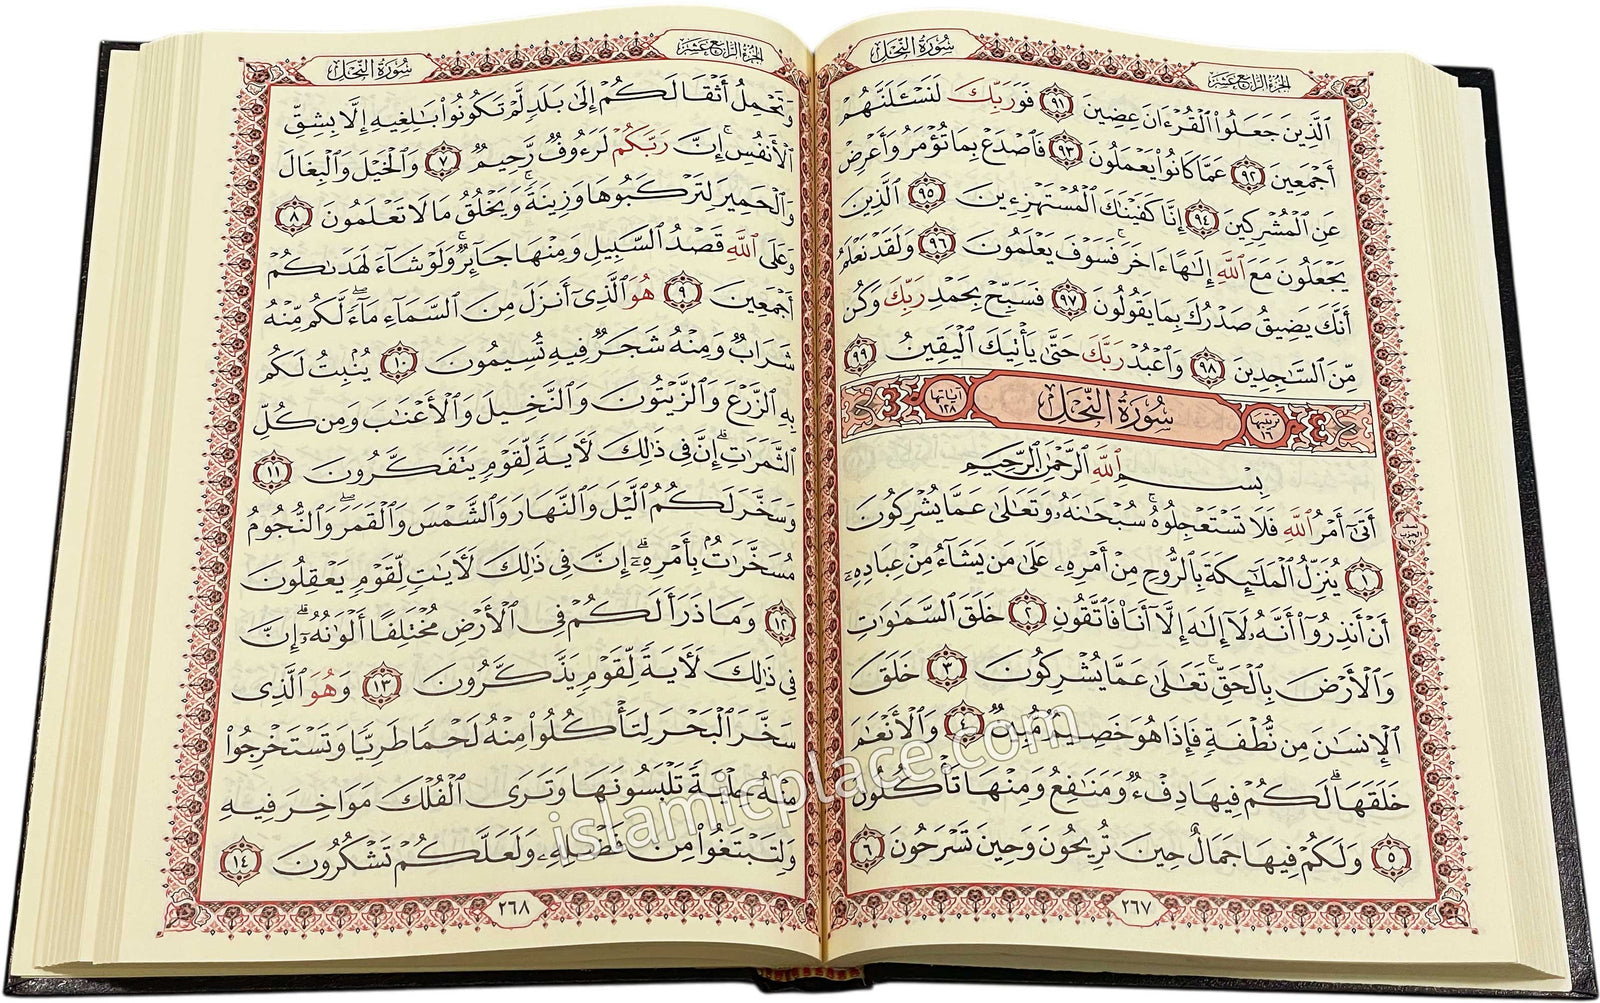 سُورَةُ النَّحْلِ
الجُزءُ الرَّابِعَ عَشَرَ
الَّذِينَ جَعَلُوا۟ الْقُرْءَانَ عِضِينَ ٩١ فَوَرَبِّكَ لَنَسْـَٔلَنَّهُمْ
أَجْمَعِينَ ٩٢ عَمَّا كَانُوا۟ يَعْمَلُونَ ٩٣ فَاصْدَعْ بِمَا تُؤْمَرُ وَأَعْرِضْ
عَنِ الْمُشْرِكِينَ ٩٤ إِنَّا كَفَيْنَاكَ الْمُسْتَهْزِءِينَ ٩٥ الَّذِينَ
يَجْعَلُونَ مَعَ اللَّهِ إِلَٰهًا ءَاخَرَ ۚ فَسَوْفَ يَعْلَمُونَ ٩٦ وَلَقَدْ نَعْلَمُ
أَنَّكَ يَضِيقُ صَدْرُكَ بِمَا يَقُولُونَ ٩٧ فَسَبِّحْ بِحَمْدِ رَبِّكَ وَكُن
مِّنَ السَّٰجِدِينَ ٩٨ وَاعْبُدْ رَبَّكَ حَتَّىٰ يَأْتِيَكَ الْيَقِينُ ٩٩
ترتيبها ١٦ سُورَةُ النَّحْلِ آياتها ١٢٨
بِسْمِ اللَّهِ الرَّحْمَٰنِ الرَّحِيمِ
أَتَىٰ أَمْرُ اللَّهِ فَلَا تَسْتَعْجِلُوهُ ۚ سُبْحَٰنَهُۥ وَتَعَٰلَىٰ عَمَّا يُشْرِكُونَ
١ يُنَزِّلُ الْمَلَٰٓئِكَةَ بِالرُّوحِ مِنْ أَمْرِهِۦ عَلَىٰ مَن يَشَآءُ مِنْ عِبَادِهِۦٓ
أَنْ أَنذِرُوٓا۟ أَنَّهُۥ لَآ إِلَٰهَ إِلَّآ أَنَا۠ فَاتَّقُونِ ٢ خَلَقَ السَّمَٰوَٰتِ
وَالْأَرْضَ بِالْحَقِّ ۚ تَعَٰلَىٰ عَمَّا يُشْرِكُونَ ٣ خَلَقَ
الْإِنسَٰنَ مِن نُّطْفَةٍ فَإِذَا هُوَ خَصِيمٌ مُّبِينٌ ٤ وَالْأَنْعَٰمَ
خَلَقَهَا ۗ لَكُمْ فِيهَا دِفْءٌ وَمَنَٰفِعُ وَمِنْهَا تَأْكُلُونَ
٥ وَلَكُمْ فِيهَا جَمَالٌ حِينَ تُرِيحُونَ وَحِينَ تَسْرَحُونَ ٦
٢٦٧
الجُزءُ الرَّابِعَ عَشَرَ
سُورَةُ النَّحْلِ
وَتَحْمِلُ أَثْقَالَكُمْ إِلَىٰ بَلَدٍ لَّمْ تَكُونُوا۟ بَٰلِغِيهِ إِلَّا بِشِقِّ
الْأَنفُسِ ۚ إِنَّ رَبَّكُمْ لَرَءُوفٌ رَّحِيمٌ ٧ وَالْخَيْلَ وَالْبِغَالَ
وَالْحَمِيرَ لِتَرْكَبُوهَا وَزِينَةً ۚ وَيَخْلُقُ مَا لَا تَعْلَمُونَ ٨
وَعَلَى اللَّهِ قَصْدُ السَّبِيلِ وَمِنْهَا جَآئِرٌ ۚ وَلَوْ شَآءَ لَهَدَىٰكُمْ
أَجْمَعِينَ ٩ هُوَ الَّذِىٓ أَنزَلَ مِنَ السَّمَآءِ مَآءً ۖ لَّكُم مِّنْهُ
شَرَابٌ وَمِنْهُ شَجَرٌ فِيهِ تُسِيمُونَ ١٠ يُنۢبِتُ لَكُم
بِهِ الزَّرْعَ وَالزَّيْتُونَ وَالنَّخِيلَ وَالْأَعْنَٰبَ وَمِن كُلِّ
الثَّمَرَٰتِ ۗ إِنَّ فِى ذَٰلِكَ لَءَايَةً لِّقَوْمٍ يَتَفَكَّرُونَ ١١
وَسَخَّرَ لَكُمُ الَّيْلَ وَالنَّهَارَ وَالشَّمْسَ وَالْقَمَرَ ۖ وَالنُّجُومُ
مُسَخَّرَٰتٌۢ بِأَمْرِهِۦٓ ۗ إِنَّ فِى ذَٰلِكَ لَءَايَٰتٍ لِّقَوْمٍ يَعْقِلُونَ
١٢ وَمَا ذَرَأَ لَكُمْ فِى الْأَرْضِ مُخْتَلِفًا أَلْوَٰنُهُۥٓ ۗ إِنَّ
فِى ذَٰلِكَ لَءَايَةً لِّقَوْمٍ يَذَّكَّرُونَ ١٣ وَهُوَ الَّذِى
سَخَّرَ الْبَحْرَ لِتَأْكُلُوا۟ مِنْهُ لَحْمًا طَرِيًّا وَتَسْتَخْرِجُوا۟
مِنْهُ حِلْيَةً تَلْبَسُونَهَا وَتَرَى الْفُلْكَ مَوَاخِرَ فِيهِ
وَلِتَبْتَغُوا۟ مِن فَضْلِهِۦ وَلَعَلَّكُمْ تَشْكُرُونَ ١٤
٢٦٨
islamicplace.com